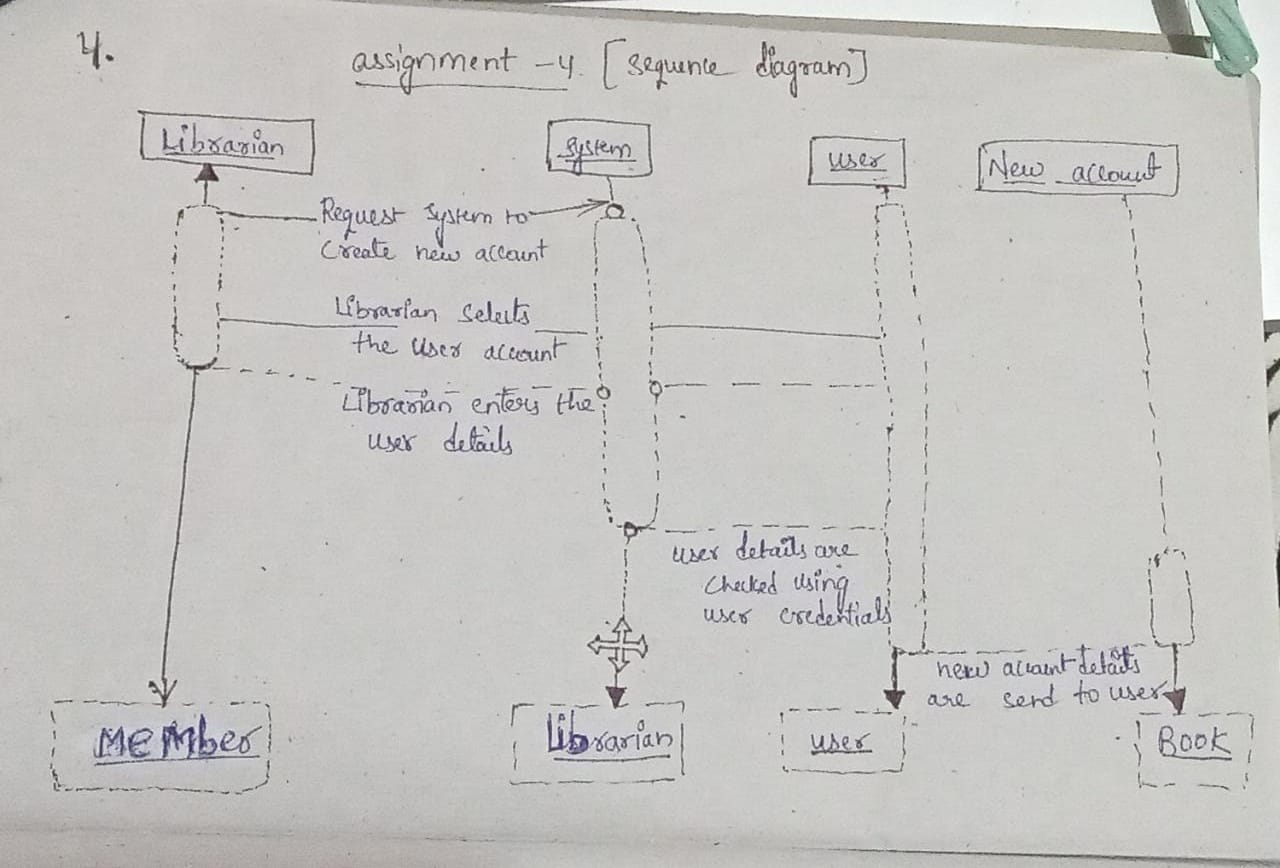 4.
assignment -4. [sequence diagram]
Librarian
system
user
New account
Request system to
create new account
Librarian selects
the user account
Librarian enters the
user details
user details are
checked using
user credentials
new account details
are send to user
MEMber
Librarian
user
BOOK